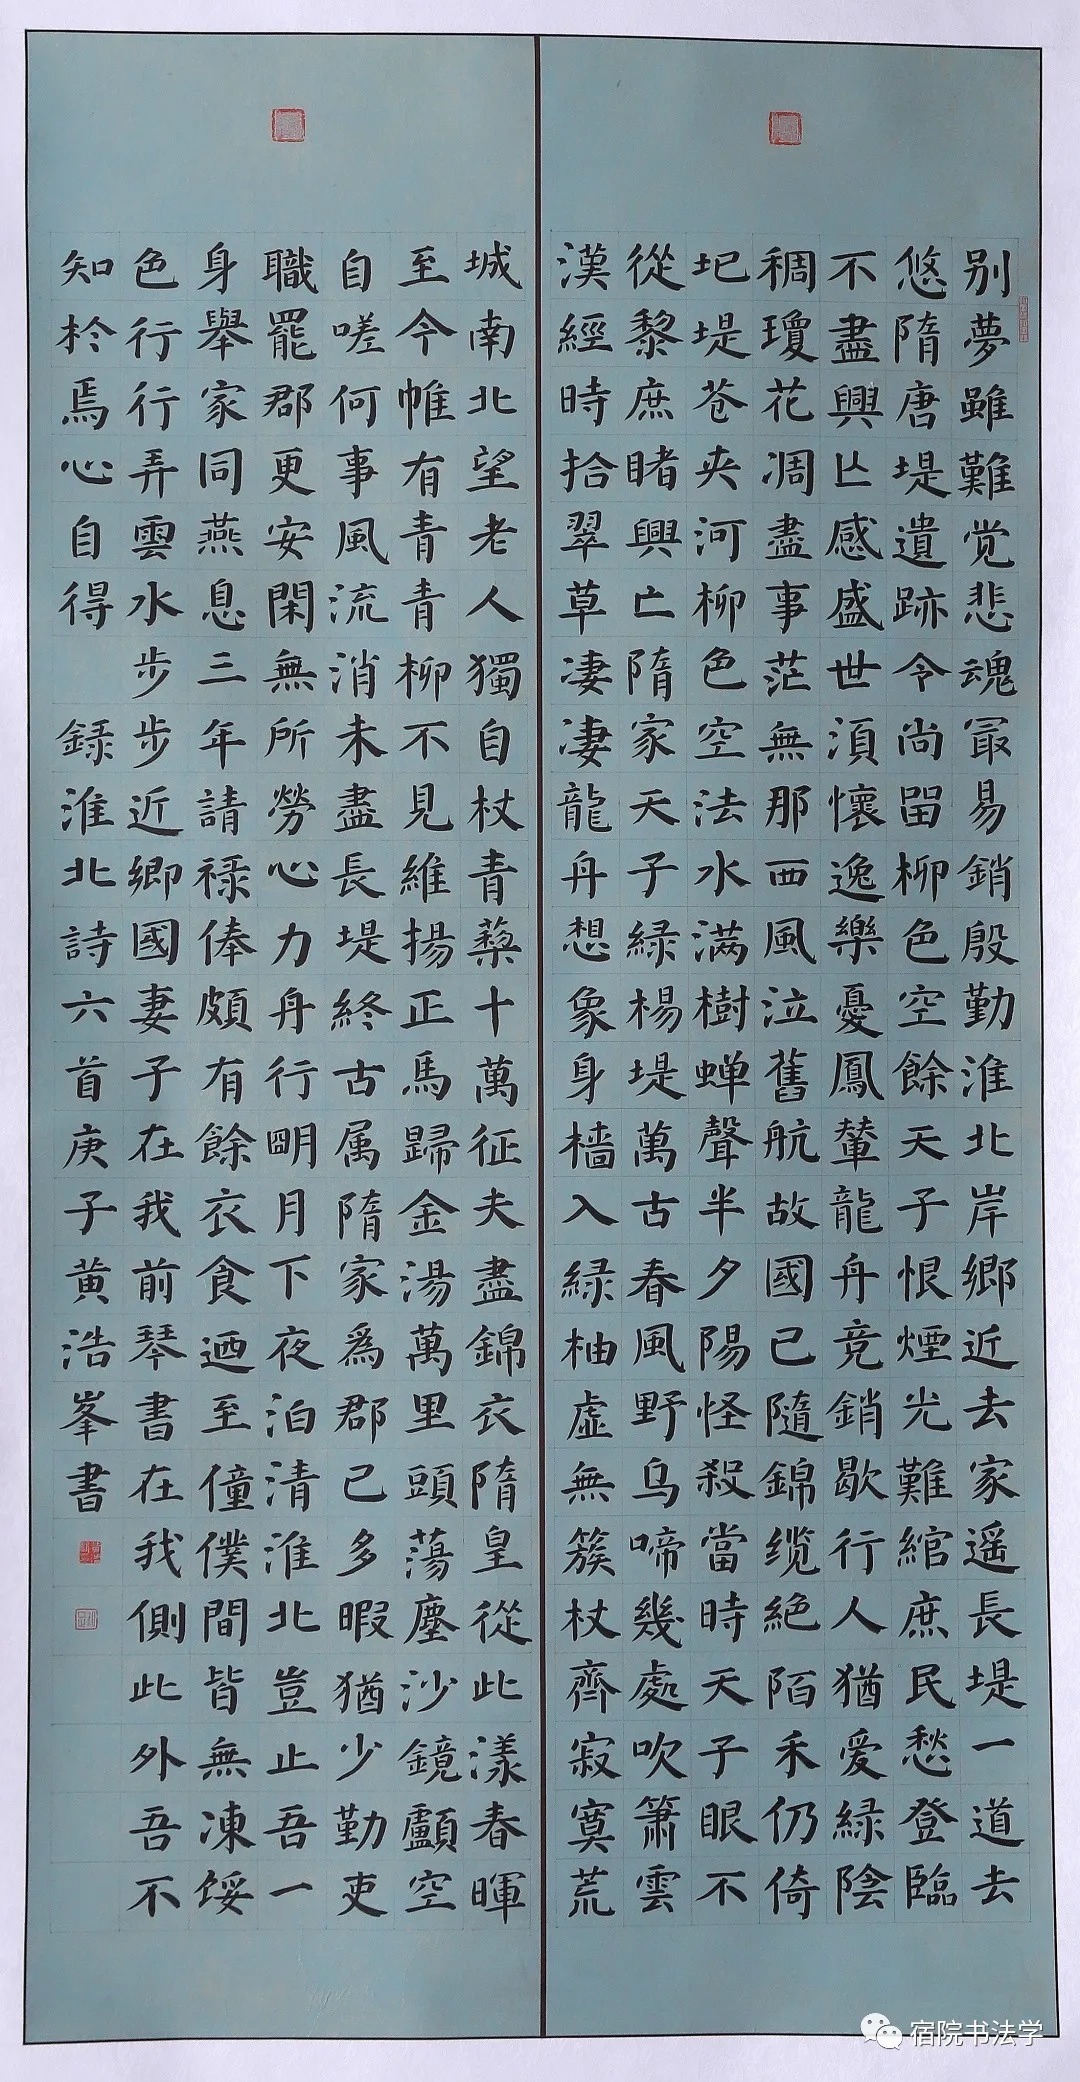 别夢雖難觉悲魂冣易銷殷勤淮北岸郷近去家遥長堤一道去
悠隋唐堤遺跡令尚畱柳色空餘天子恨煙光難綰庶民愁登臨
不盡興亾感盛世湏懷逸樂憂鳳輦龍舟竞銷歇行人猶爱緑陰
稠瓊花凋盡事茫無那西風泣舊航故國已隨錦缆絶陌禾仍倚
圯堤苍夹河柳色空法水满樹蝉聲半夕陽怪殺當時天子眼不
從黎庶睹興亡隋家天子緑楊堤萬古春風野乌啼幾處吹箫雲
漢經時拾翠草凄凄龍舟想象身樯入緑柚虚無簇杖齊寂寞荒
城南北望老人獨自杖青藜十萬征夫盡錦衣隋皇從此漾春暉
至今帷有青青柳不見維揚正馬歸金湯萬里頭蕩塵沙鏡顱空
自嗟何事風流消未盡長堤終古属隋家為郡已多暇猶少勤吏
職罷郡更安閑無所勞心力舟行明月下夜泊清淮北豈止吾一
身舉家同燕息三年請禄俸頗有餘衣食迺至僮僕間皆無凍馁
色行行弄雲水步步近郷國妻子在我前琴書在我側此外吾不
知於焉心自得
録淮北詩六首庚子黄浩峯書
宿院书法学